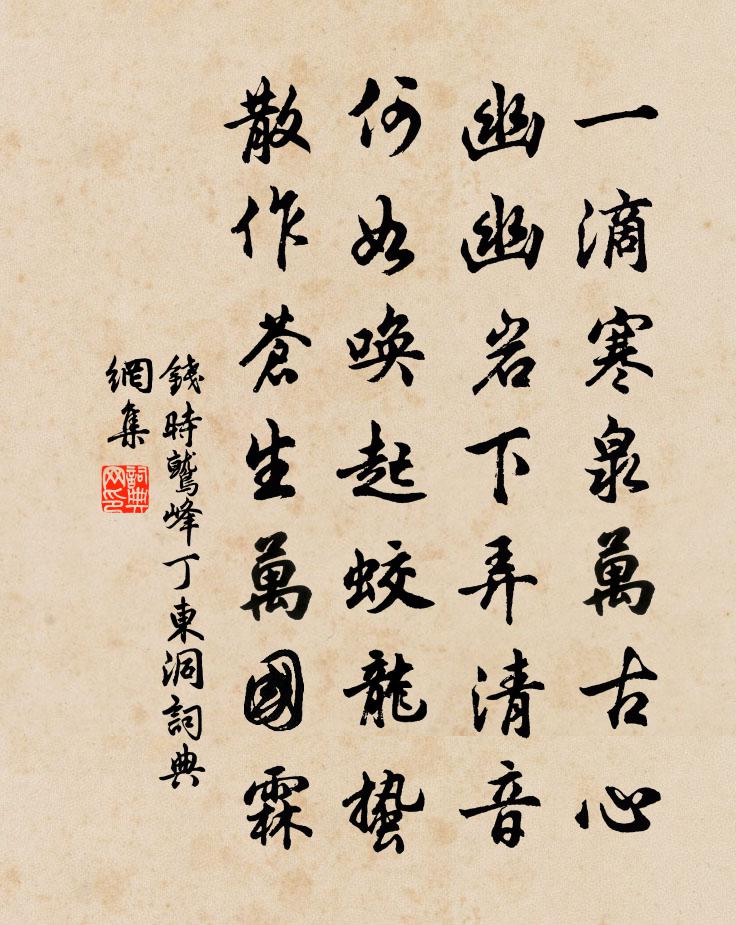 一滴寒泉萬古心
幽幽岩下弄清音
何如喚起蛟龍蟄
散作蒼生萬國霖
錢時鷲峰丁東洞詞典
網集
詞典
网印